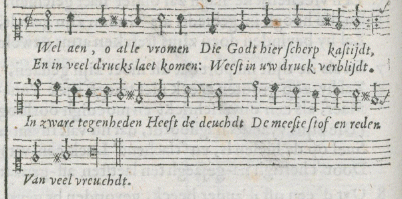 Wel aen, o alle vromen Die Godt hier scherp kastijdt,
En in veel drucks laet komen: Weest in uw druck verblijdt.
In zware tegenheden Heeft de deuchdt De meeste stof en reden
Van veel vreuchdt.